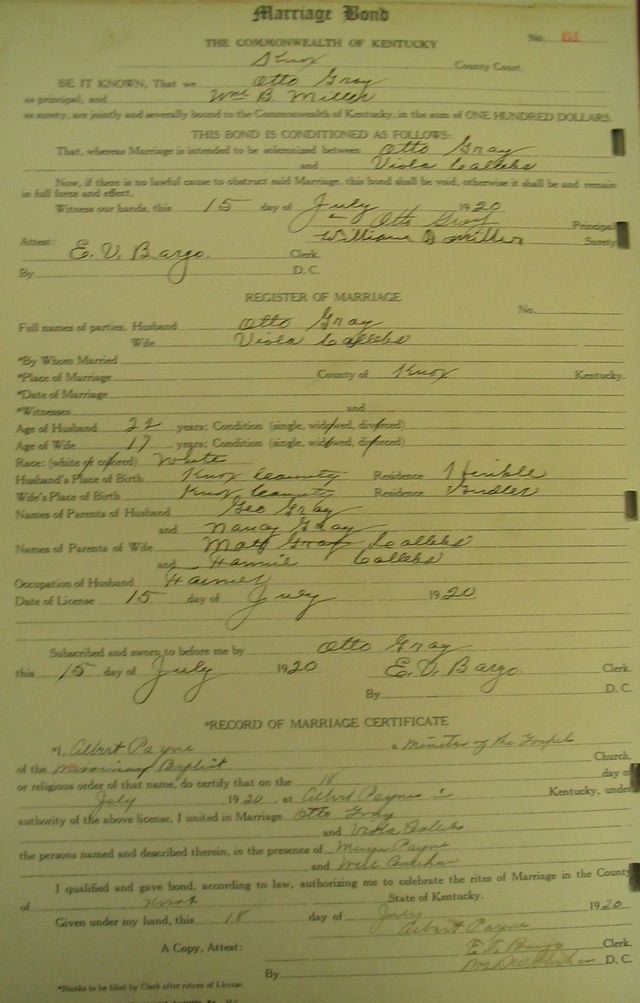 Marriage Bond
No. 61
THE COMMONWEALTH OF KENTUCKY
Knox County Court.
BE IT KNOWN, That we Otto Gray
as principal, and Wm B. Miller
as surety, are jointly and severally bound to the Commonwealth of Kentucky, in the sum of ONE HUNDRED DOLLARS.
THIS BOND IS CONDITIONED AS FOLLOWS:
That, whereas Marriage is intended to be solemnized between Otto Gray
and Viola Callebs
Now, if there is no lawful cause to obstruct said Marriage, this bond shall be void, otherwise it shall be and remain
in full force and effect.
Witness our hands, this 15 day of July 1920
Otto Gray Principal
William B Miller Surety
Attest: E. V. Bargo. Clerk.
By D. C.
REGISTER OF MARRIAGE
No.
Full names of parties, Husband Otto Gray
Wife Viola Callebs
*By Whom Married
*Place of Marriage County of Knox Kentucky.
*Date of Marriage
*Witnesses and
Age of Husband 22 years; Condition (single, widowed, divorced)
Age of Wife 17 years; Condition (single, widowed, divorced)
Race: (white or colored) White
Husband's Place of Birth Knox County Residence
Wife's Place of Birth Knox County Residence
Names of Parents of Husband Geo Gray
and Nancy Gray
Names of Parents of Wife Matt Gray Callebs
and Fannie Callebs
Occupation of Husband Farmer
Date of License 15 day of July 1920
Subscribed and sworn to before me by Otto Gray
this 15 day of July 1920 E. V. Bargo. Clerk.
By D. C.
*RECORD OF MARRIAGE CERTIFICATE
*I, Albert Payne a Minister of the Gospel
of the Missionary Baptist Church,
or religious order of that name, do certify that on the 18 day of
July 1920, at Albert Payne's Kentucky, under
authority of the above license, I united in Marriage Otto Gray
and Viola Calebs
the persons named and described therein, in the presence of Payne
and Will
I qualified and gave bond, according to law, authorizing me to celebrate the rites of Marriage in the County
of Knox State of Kentucky.
Given under my hand, this 18 day of July 1920
Albert Payne
A Copy, Attest: E. V. Bargo Clerk.
By D. C.
*Blanks to be filed by Clerk after return of License.